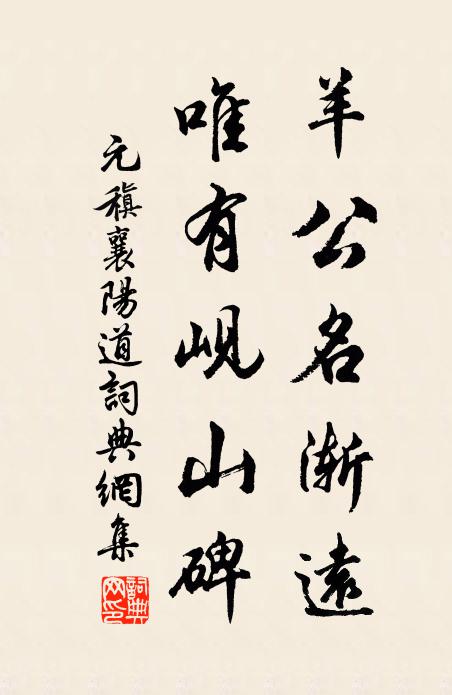 羊公名漸遠
唯有峴山碑
元稹襄陽道詞典網集
詞典網印